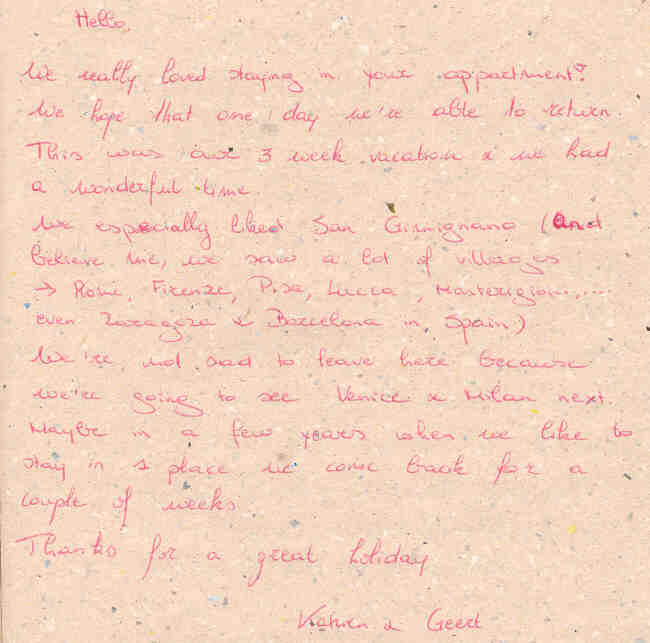 Hello,
We really loved staying in your appartment!
We hope that one day we're able to return.
This was our 3 week vacation & we had
a wonderful time.
We especially liked San Gimignano (And
believe me, we saw a lot of villages
→ Rome, Firenze, Pisa, Lucca, Monteriggioni,....
even Zaragoza & Barcelona in Spain)
We're not sad to leave here because
we're going to see Venice & Milan next.
Maybe in a few years when we like to
stay in 1 place we come back for a
couple of weeks
Thanks for a great holiday
Katrien & Geert